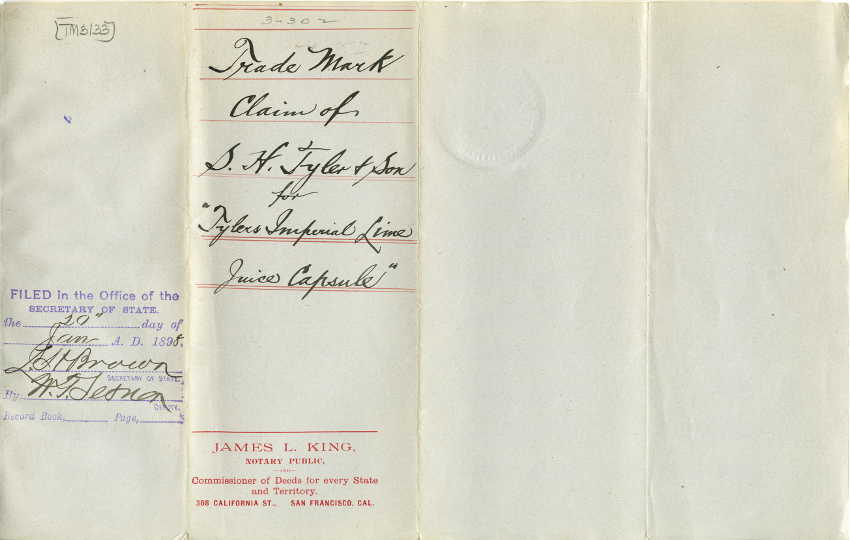 TM3133
FILED in the Office of the
SECRETARY OF STATE.
the 20" day of
Jan A. D. 1898.
L. H. Brown
SECRETARY OF STATE.
By W. T. Sesnon
DEPUTY.
Record Book, Page,
3-302
Trade Mark
Claim of
S. H. Tyler & Son
for
"Tylers Imperial Lime
Juice Capsule"
JAMES L. KING,
NOTARY PUBLIC,
—AND—
Commissioner of Deeds for every State
and Territory.
308 CALIFORNIA ST., SAN FRANCISCO, CAL.